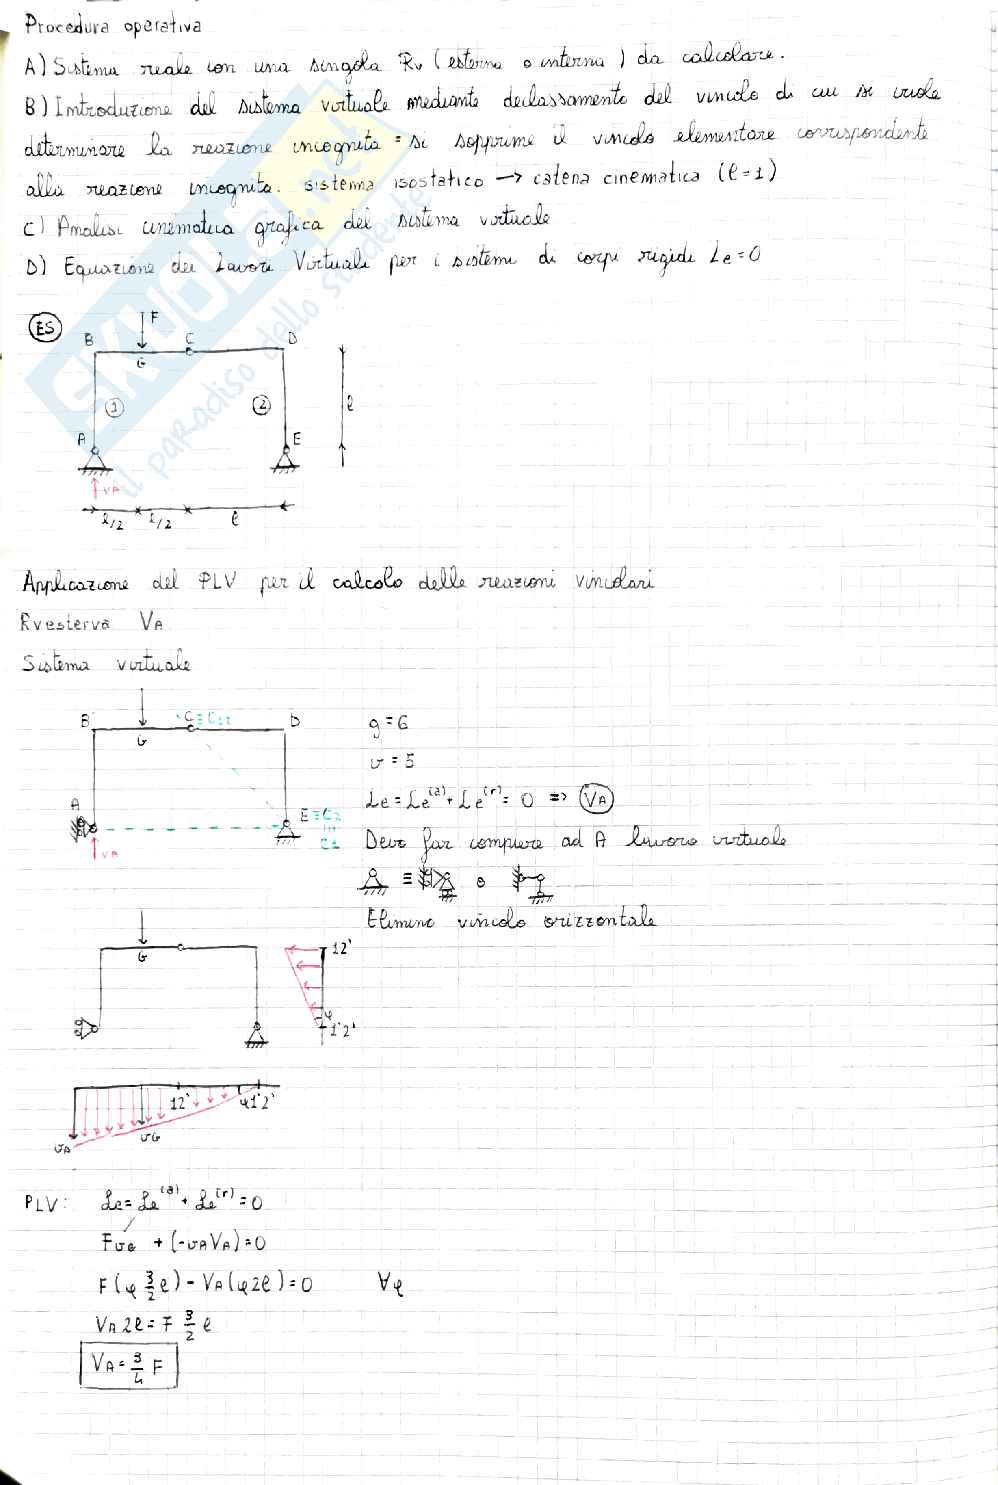 Procedura operativa
A) Sistema reale con una singola Rv (esterna o interna) da calcolare.
B) Introduzione del sistema virtuale mediante declassamento del vincolo di cui si vuole
determinare la reazione incognita = si sopprime il vincolo elementare corrispondente
alla reazione incognita. sistema isostatico → catena cinematica (l=1)
C) Analisi cinematica grafica del sistema virtuale
D) Equazione dei Lavori Virtuali per i sistemi di corpi rigidi Le=0
SKUOLA.net
il paradiso dello studente
ES
F
B C D
G
1 2 l
A E
VA
l/2 l/2 l
Applicazione del PLV per il calcolo delle reazioni vincolari
Rvesterva VA
Sistema virtuale
B C≡C12 D
G
g=6
v=5
A E≡C2
C1
VA
Le=Le(a)+Le(r)=0 => VA
Deve far compiere ad A lavoro virtuale
≡ o
Elimino vincolo orizzontale
G 12'
φ
1'2'
12' φ1'2'
vA vG
PLV: Le=Le(a)+Le(r)=0
FvG +(-vAVA)=0
F(φ 3/2 l)-VA(φ2l)=0 ∀φ
VA2l=F 3/2 l
VA=3/4 F